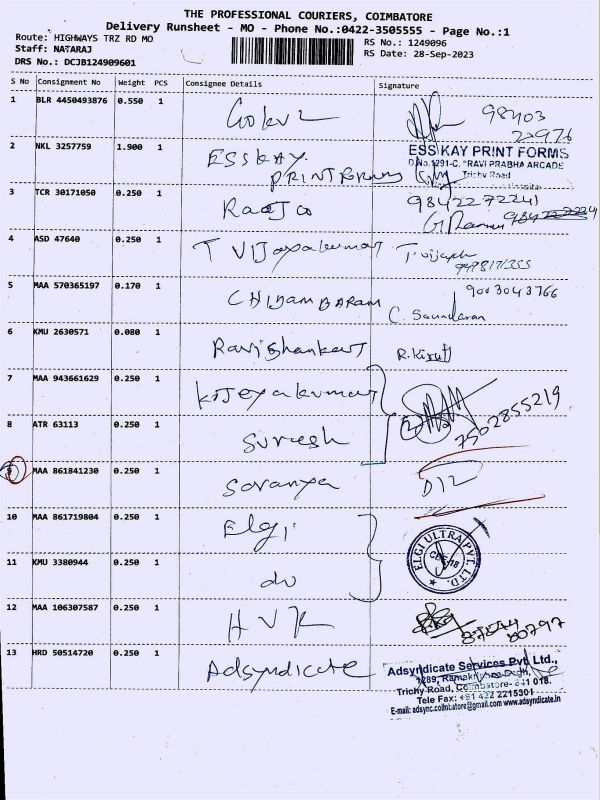 THE PROFESSIONAL COURIERS, COIMBATORE
Delivery Runsheet - MO - Phone No.:0422-3505555 - Page No.:1
Route: HIGHWAYS TRZ RD MO
Staff: NATARAJ
DRS No.: DCJB124909601
RS No.: 1249096
RS Date: 28-Sep-2023
S No Consignment No Weight PCS Consignee Details Signature
1 BLR 4450493876 0.550 1 Gokul 98403
20976
2 NKL 3257759 1.900 1 ESSKAY
PRINT FORMS
ESS KAY PRINT FORMS
D.No.1291-C, "RAVI PRABHA ARCADE
Trichy Road
Hospital
3 TCR 30171050 0.250 1 Raaja 9842272241
G. Raman
4 ASD 47640 0.250 1 T Vijayakumar T. Vijayk
5 MAA 570365197 0.170 1 CHIDAMBARAM 9003043766
C. Soundaran
6 KMU 2630571 0.080 1 Ravishankar R. Kirutt
7 MAA 943661629 0.250 1 K Jeyakumar
7502855219
8 ATR 63113 0.250 1 Suresh
9 MAA 861841230 0.250 1 Saranya D12
10 MAA 861719804 0.250 1 Elgi
ELGI ULTRA PVT. LTD.
CBE-18
11 KMU 3380944 0.250 1 do
12 MAA 106307587 0.250 1 H V K 87544
80797
13 HRD 50514720 0.250 1 Adsyndicate
Adsyndicate Services Pvt. Ltd.,
1289, Ramakrishna
Trichy Road, Coimbatore- 641 018.
Tele Fax: +91 422 2215301
E-mail: adsync.coimbatore@gmail.com www.adsyndicate.in